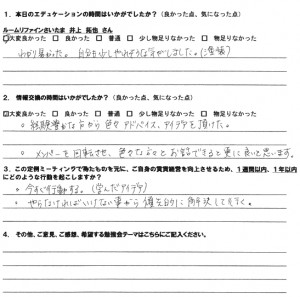 1．本日のエデュケーションの時間はいかがでしたか？（良かった点、気になった点）
ルームリファインさいたま 井上 拓也 さん
☑大変良かった □ 良かった □ 普通 □ 少し物足りなかった □ 物足りなかった
わかり易かった。自分も少しやれそうな気がしました。（準備）
2．情報交換の時間はいかがでしたか？（良かった点、気になった点）
☑大変良かった □ 良かった □ 普通 □ 少し物足りなかった □ 物足りなかった
。経験豊かな方から色々アドバイス、アイデアを頂けた。
。メンバーを回転させ、色々な方々とお話できると更に良いと思います。
3．この定例ミーティングで為たものを元に、ご自身の賃貸経営を向上させるため、1週間以内、1年以内
にどのような行動を起こしますか？
。今すぐ行動する。（学んだアイデア）
。やらなければいけない事から優先的に解決して行く。
4．その他、ご意見、ご感想、希望する勉強会テーマはこちらにご記入ください。